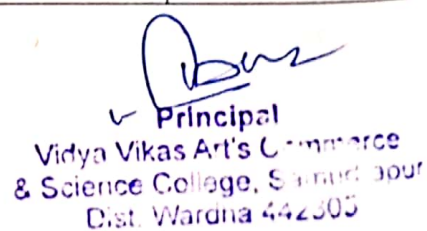 Principal
Vidya Vikas Art's Commerce
& Science College, Samudrapur
Dist. Wardha 442305